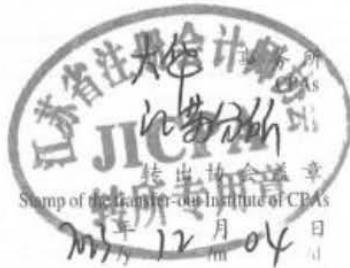 江苏省注册会计师协会
大华 事务所
CPAs
江苏分所
JICPA
转出协会盖章
Stamp of the transfer-out Institute of CPAs
转所专用章
2023年 12月 04日
/y /m /d